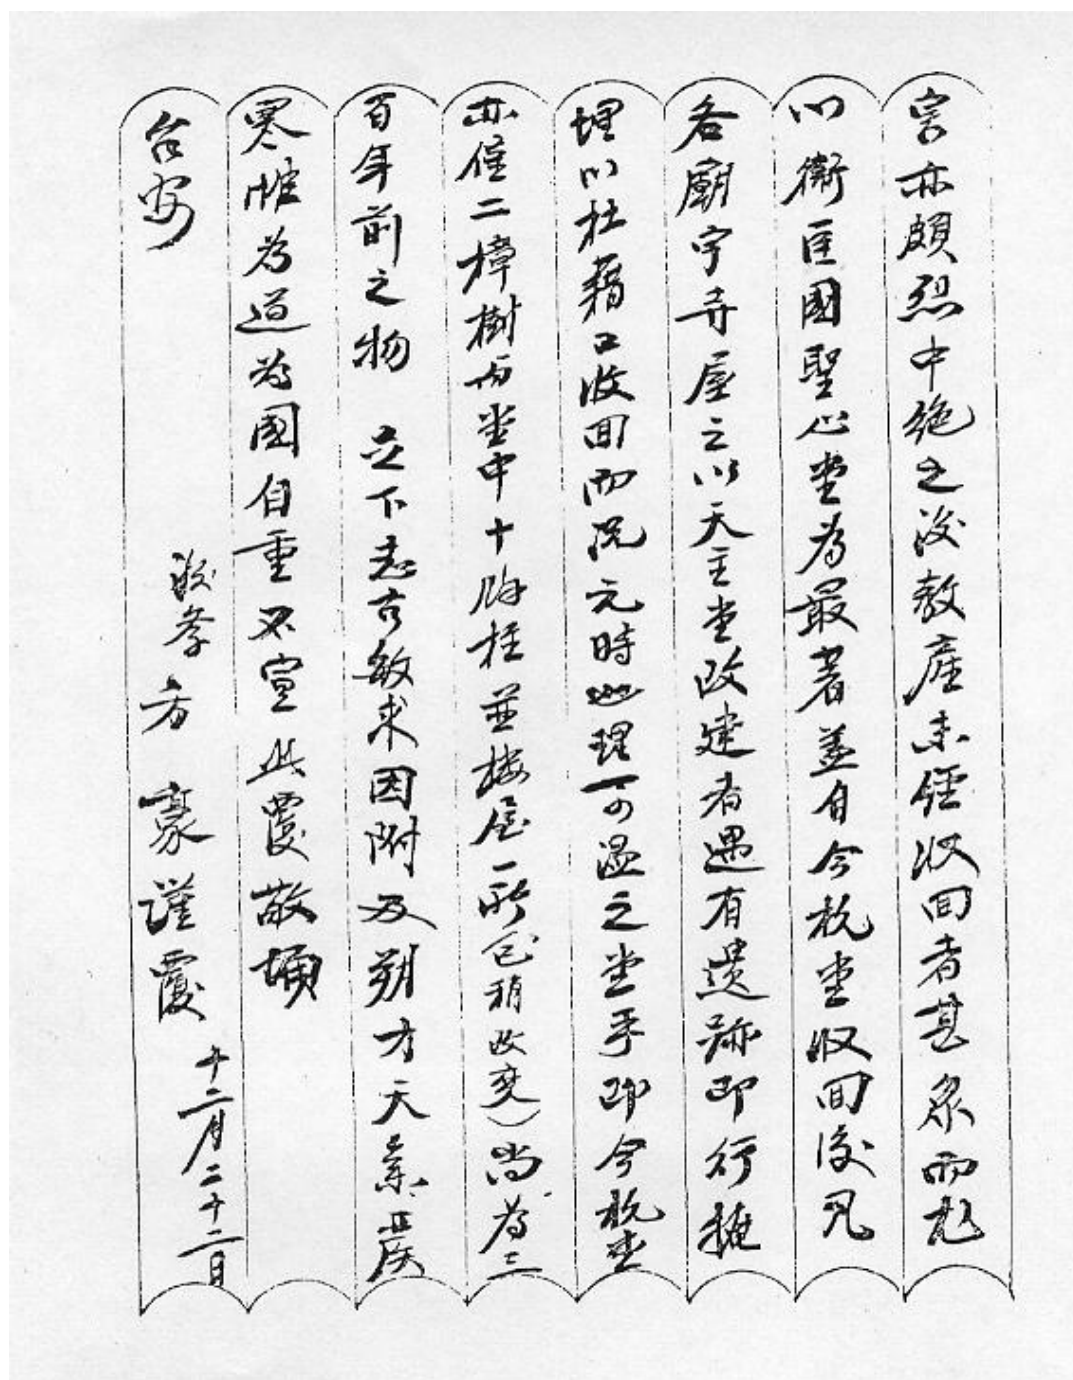 宮亦頗烈中絕之後教產未經收回者甚眾而尤
以衛匡國聖心堂為最著蓋自今杭堂收回後凡
各廟宇寺屋之以天主堂改建者遇有遺跡即行掩
埋以杜藉口收回而況元時地理可溫之堂乎即今杭堂
亦僅二樟樹與堂中十餘柱並樓屋一所已稍改變）尚為三
百年前之物 立下志古敏求因附及朔方天氣嚴
寒惟為道為國自重不宣此覆敬頌
台安
後學方 豪謹覆
十二月二十二日